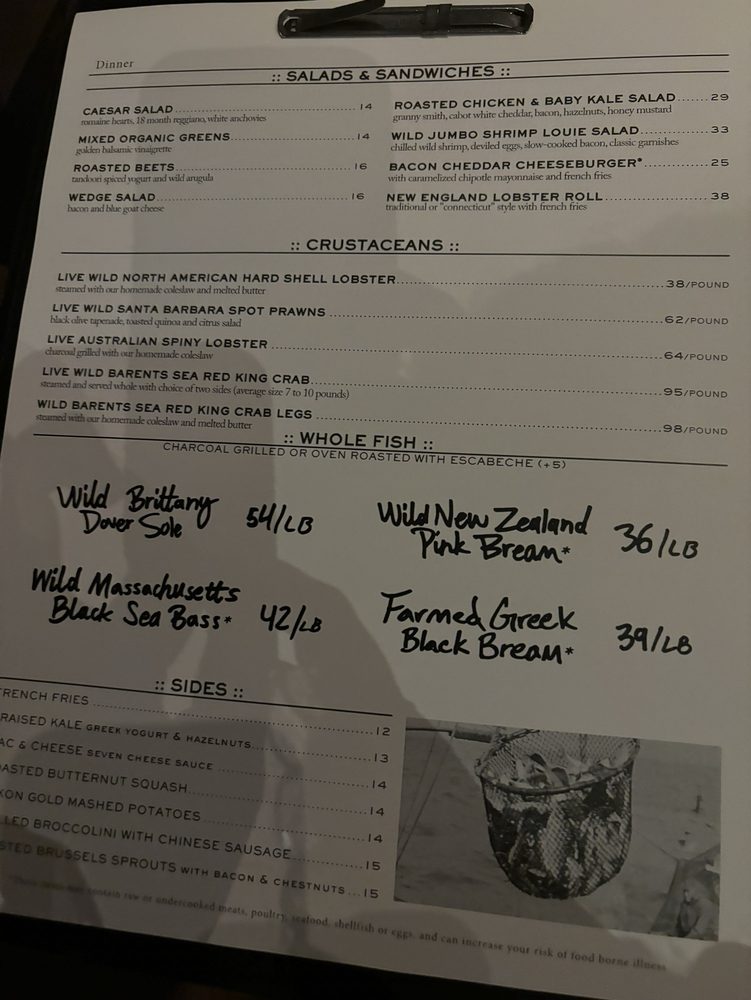 Dinner
:: SALADS & SANDWICHES ::
CAESAR SALAD 14
romaine hearts, 18 month reggiano, white anchovies
MIXED ORGANIC GREENS 14
golden balsamic vinaigrette
ROASTED BEETS 16
tandoori spiced yogurt and wild arugula
WEDGE SALAD 16
bacon and blue goat cheese
ROASTED CHICKEN & BABY KALE SALAD 29
granny smith, cabot white cheddar, bacon, hazelnuts, honey mustard
WILD JUMBO SHRIMP LOUIE SALAD 33
chilled wild shrimp, deviled eggs, slow-cooked bacon, classic garnishes
BACON CHEDDAR CHEESEBURGER* 25
with caramelized chipotle mayonnaise and french fries
NEW ENGLAND LOBSTER ROLL 38
traditional or "connecticut" style with french fries
:: CRUSTACEANS ::
LIVE WILD NORTH AMERICAN HARD SHELL LOBSTER 38/POUND
steamed with our homemade coleslaw and melted butter
LIVE WILD SANTA BARBARA SPOT PRAWNS 62/POUND
black olive tapenade, toasted quinoa and citrus salad
LIVE AUSTRALIAN SPINY LOBSTER 64/POUND
charcoal grilled with our homemade coleslaw
LIVE WILD BARENTS SEA RED KING CRAB 95/POUND
steamed and served whole with choice of two sides (average size 7 to 10 pounds)
WILD BARENTS SEA RED KING CRAB LEGS 98/POUND
steamed with our homemade coleslaw and melted butter
:: WHOLE FISH ::
CHARCOAL GRILLED OR OVEN ROASTED WITH ESCABECHE (+5)
Wild Brittany
Dover Sole 54/LB
Wild New Zealand
Pink Bream* 36/LB
Wild Massachusetts
Black Sea Bass* 42/LB
Farmed Greek
Black Bream* 39/LB
:: SIDES ::
FRENCH FRIES 12
RAISED KALE GREEK YOGURT & HAZELNUTS 13
AC & CHEESE SEVEN CHEESE SAUCE 14
OASTED BUTTERNUT SQUASH 14
KON GOLD MASHED POTATOES 14
LLED BROCCOLINI WITH CHINESE SAUSAGE 15
STED BRUSSELS SPROUTS WITH BACON & CHESTNUTS 15
*These items may contain raw or undercooked meats, poultry, seafood, shellfish or eggs, and can increase your risk of food borne illness